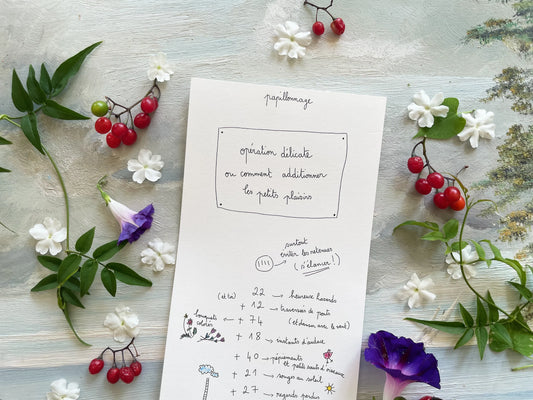 papillonnage
opération délicate
ou comment additionner
les petits plaisirs
surtout
éviter les retenues
(s'élancer!)
(et toi) 22 → heureux hasards
+ 12 → traversées de ponts
(et danser avec le vent)
bouquets colorés ← + 74
+ 18 → instants d'audace
+ 40 → pépiements
et petits sauts d'oiseaux
+ 21 → songes au soleil
+ 27 → regards perdus